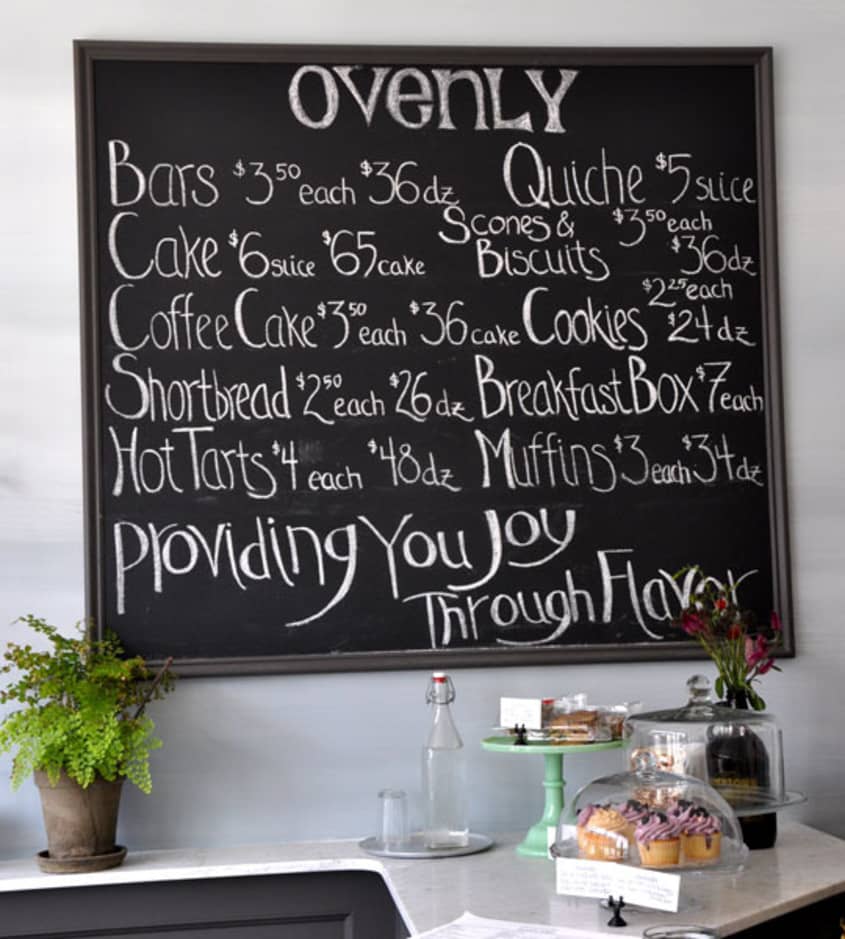 OVENLY
Bars $3.50 each $36 dz
Quiche $5 slice
Cake $6 slice $65 cake
Scones & Biscuits $3.50 each $36 dz
Coffee Cake $3.50 each $36 cake
Cookies $2.25 each $24 dz
Shortbread $2.50 each $26 dz
Breakfast Box $7 each
Hot Tarts $4 each $48 dz
Muffins $3 each $34 dz
Providing You Joy
Through Flavor